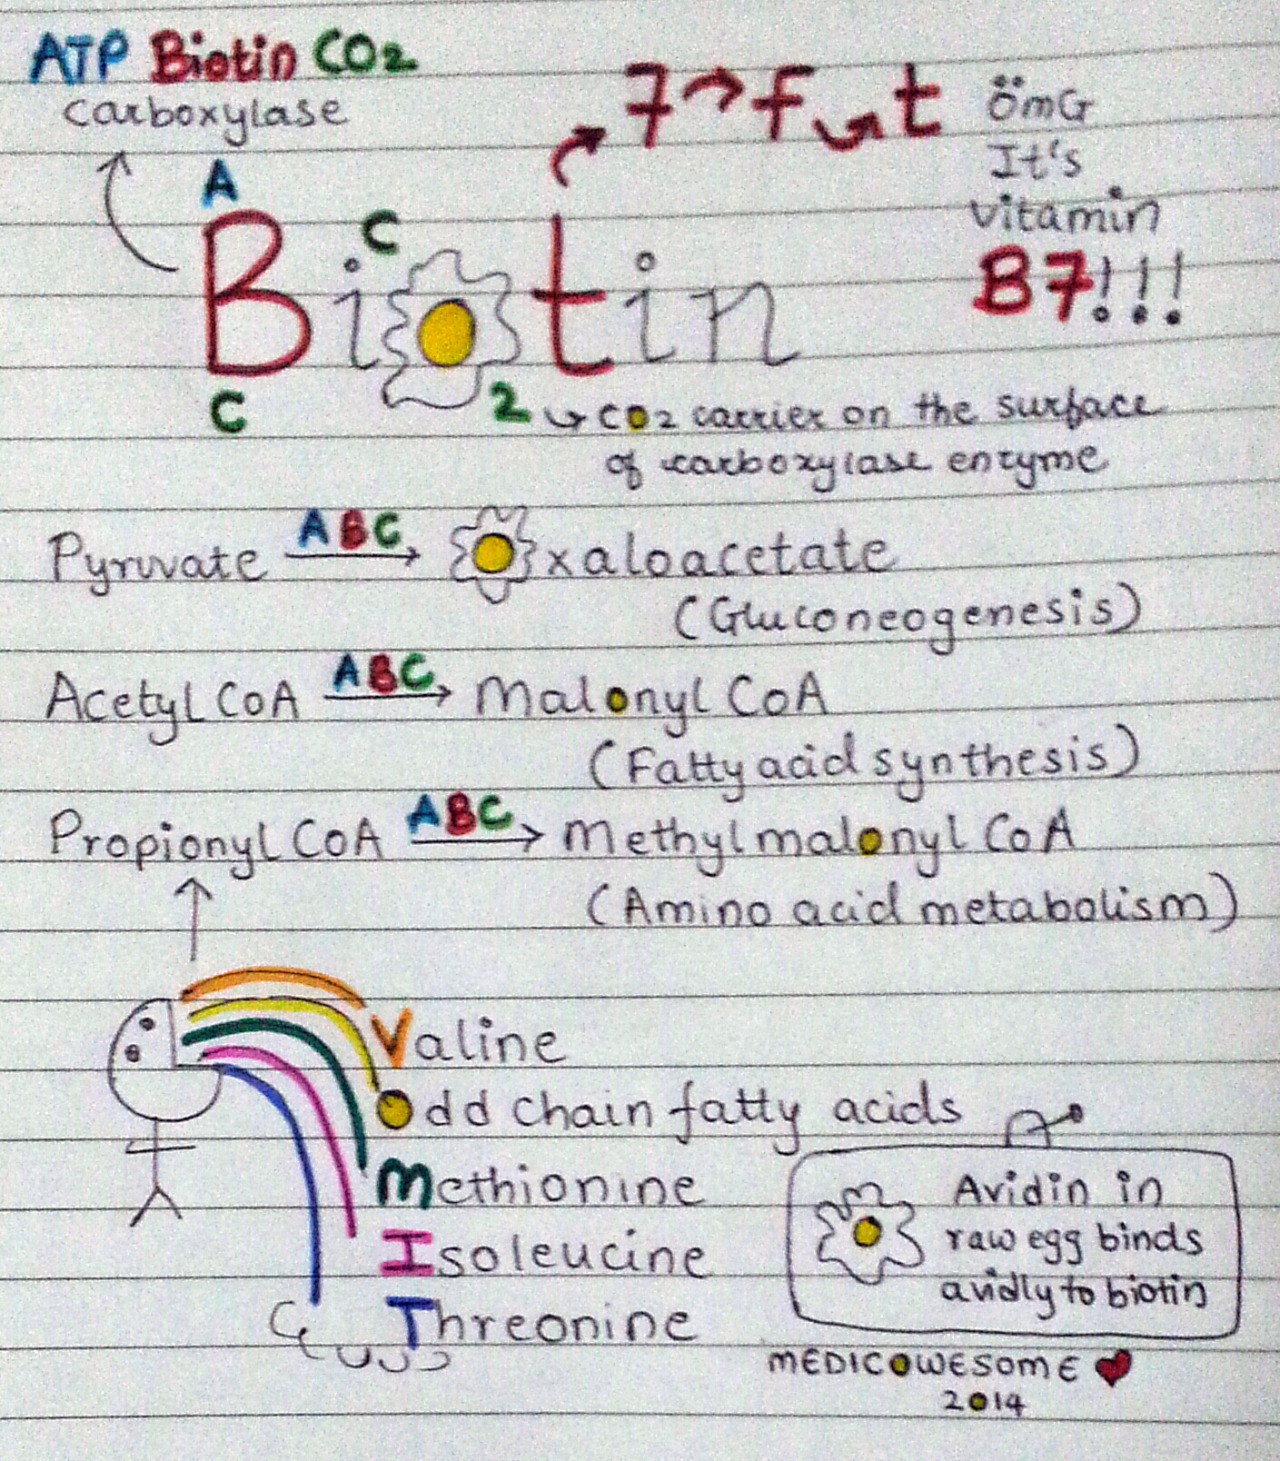 ATP Biotin CO2
carboxylase
7 → f → t
ÖMG
It's
vitamin
B7!!!
A
C
Biotin
C
2 → CO2 carrier on the surface
of carboxylase enzyme
Pyruvate ABC → Oxaloacetate
(Gluconeogenesis)
Acetyl CoA ABC → Malonyl CoA
(Fatty acid synthesis)
Propionyl CoA ABC → Methylmalonyl CoA
(Amino acid metabolism)
Valine
Odd chain fatty acids
Methionine
Isoleucine
Threonine
Avidin in
raw egg binds
avidly to biotin
MEDICOWESOME ♥
2014